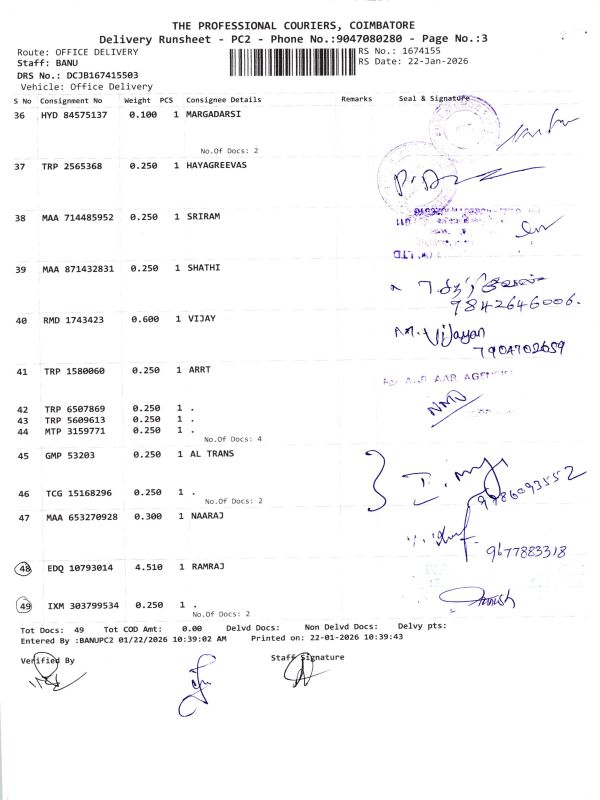 THE PROFESSIONAL COURIERS, COIMBATORE
Delivery Runsheet - PC2 - Phone No.:9047080280 - Page No.:3
Route: OFFICE DELIVERY RS No.: 1674155
Staff: BANU RS Date: 22-Jan-2026
DRS No.: DCJB167415503
Vehicle: Office Delivery
S No Consignment No Weight PCS Consignee Details Remarks Seal & Signature
36 HYD 84575137 0.100 1 MARGADARSI
No.Of Docs: 2
37 TRP 2565368 0.250 1 HAYAGREEVAS
38 MAA 714485952 0.250 1 SRIRAM
39 MAA 871432831 0.250 1 SHATHI
9842646006.
40 RMD 1743423 0.600 1 VIJAY M. Vijayan
7904702659
41 TRP 1580060 0.250 1 ARRT
For AAB AGEN
42 TRP 6507869 0.250 1 .
43 TRP 5609613 0.250 1 .
44 MTP 3159771 0.250 1 .
No.Of Docs: 4
45 GMP 53203 0.250 1 AL TRANS
46 TCG 15168296 0.250 1 . 9786093552
No.Of Docs: 2
47 MAA 653270928 0.300 1 NAARAJ
9677883318
48 EDQ 10793014 4.510 1 RAMRAJ
49 IXM 303799534 0.250 1 .
No.Of Docs: 2
Tot Docs: 49 Tot COD Amt: 0.00 Delvd Docs: Non Delvd Docs: Delvy pts:
Entered By :BANUPC2 01/22/2026 10:39:02 AM Printed on: 22-01-2026 10:39:43
Verified By Staff Signature